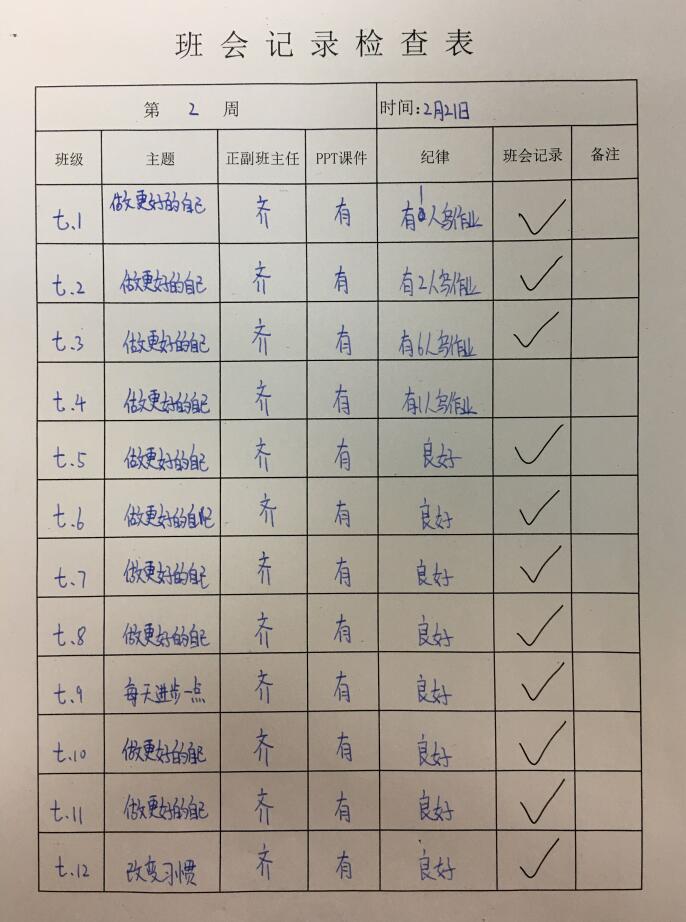 班会记录检查表
第 2 周 时间:2月21日
班级 主题 正副班主任 PPT课件 纪律 班会记录 备注
七.1 做更好的自己 齐 有 有1人写作业 ✓
七.2 做更好的自己 齐 有 有2人写作业 ✓
七.3 做更好的自己 齐 有 有6人写作业 ✓
七.4 做更好的自己 齐 有 有1人写作业
七.5 做更好的自己 齐 有 良好 ✓
七.6 做更好的自己 齐 有 良好 ✓
七.7 做更好的自己 齐 有 良好 ✓
七.8 做更好的自己 齐 有 良好 ✓
七.9 每天进步一点 齐 有 良好 ✓
七.10 做更好的自己 齐 有 良好 ✓
七.11 做更好的自己 齐 有 良好 ✓
七.12 改变习惯 齐 有 良好 ✓